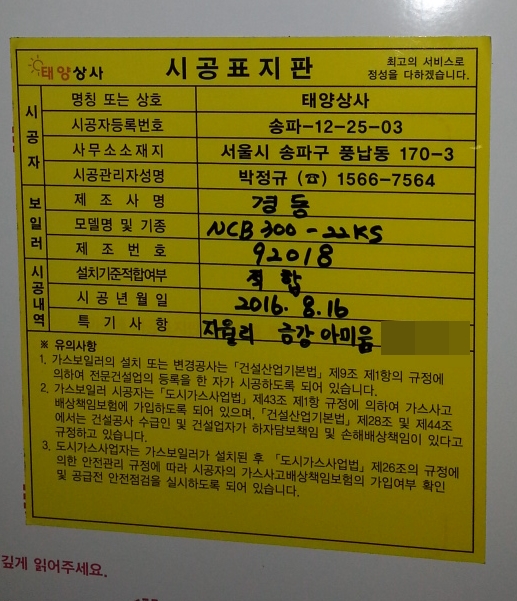 태양상사
시공표지판
최고의 서비스로
정성을 다하겠습니다.
시공자
명칭 또는 상호 태양상사
시공자등록번호 송파-12-25-03
사무소소재지 서울시 송파구 풍납동 170-3
시공관리자성명 박정규 (☎) 1566-7564
보일러
제 조 사 명 경동
모델명 및 기종 NCB300-22KS
제 조 번 호 92018
시공내역
설치기준적합여부 적합
시 공 년 월 일 2016. 8.16
특 기 사 항 금강 아미움
※ 유의사항
1. 가스보일러의 설치 또는 변경공사는 「건설산업기본법」 제9조 제1항의 규정에
의하여 전문건설업의 등록을 한 자가 시공하도록 되어 있습니다.
2. 가스보일러 시공자는 「도시가스사업법」 제43조 제1항 규정에 의하여 가스사고
배상책임보험에 가입하도록 되어 있으며, 「건설산업기본법」 제28조 및 제44조
에서는 건설공사 수급인 및 건설업자가 하자담보책임 및 손해배상책임이 있다고
규정하고 있습니다.
3. 도시가스사업자는 가스보일러가 설치된 후 「도시가스사업법」 제26조의 규정에
의한 안전관리 규정에 따라 시공자의 가스사고배상책임보험의 가입여부 확인
및 공급전 안전점검을 실시하도록 되어 있습니다.
깊게 읽어주세요.